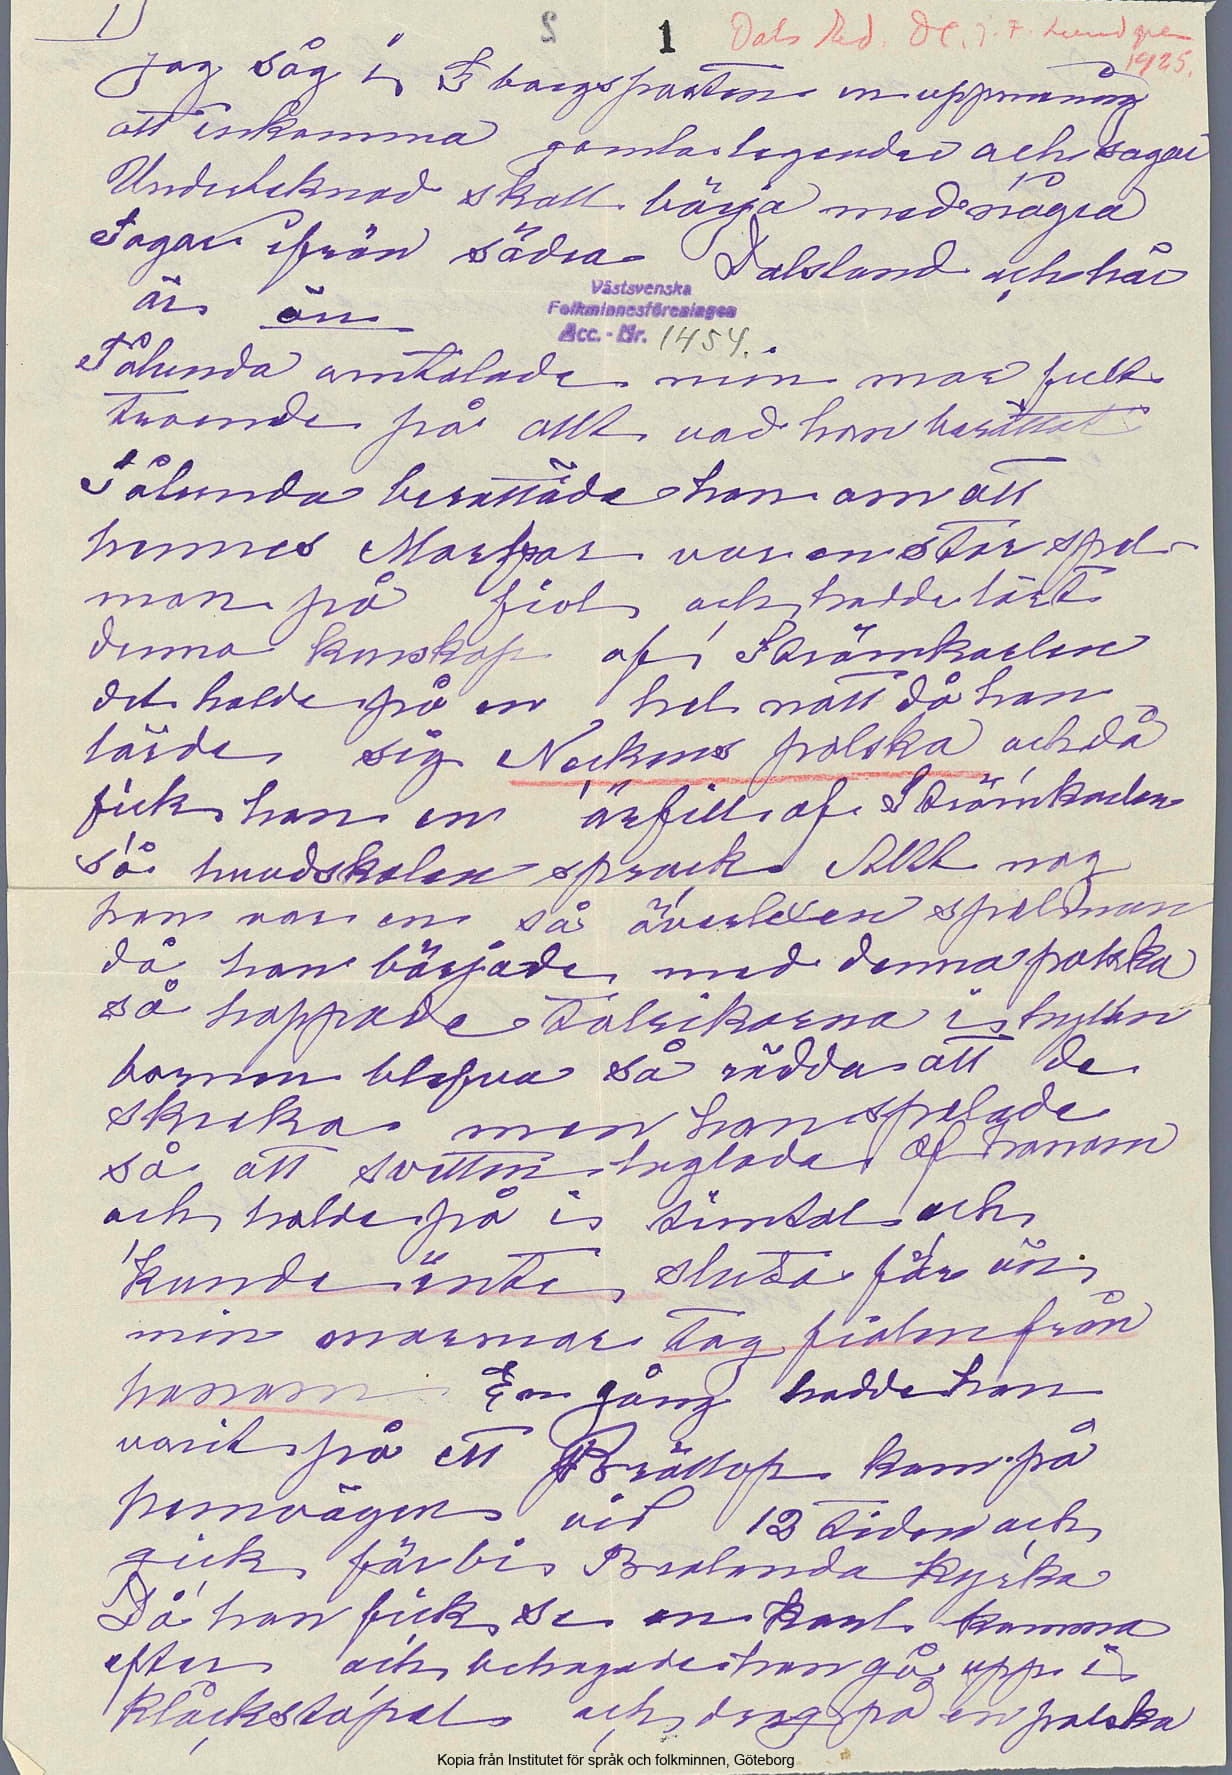 1 2 1 Dals Red. J. F. Lundgren
1925.
jag såg i Gborgsposten en uppmaning
att inkomma gamla legender och sagor
Underteknad skall börja med några
Sagor ifrån södra Dalsland och här
är en
Västsvenska
Folkminnesföreningen
Acc. - Nr. 1454.
Sålunda omtalade min mor fullt
troende på allt vad hon berättat
Sålunda berättade hon om att
hennes Morfar var en stor spel-
man på fiol och hadde lärt
denna kunskap af Strömkarlen
det holde på en hel natt då han
lärde sig Neckens polska och då
fick han en örfill af Strömkarlen
så huvudskalen sprack Allt nog
han var en så överleven spelman
då han började med denna polska
så hoppade talrikarna i hyllan
barnen blefva så rädda att de
skreka men han spelade
så att svetten haglade af honom
och holde på i timtal och
kunde inte sluta för än
min mormor tog fiolen från
honom En gång hadde han
varit på ett Bröllop kom på
hemvägen vid 12 tiden och
gick förbi Brolanda kyrka
Då han fick se en karl komma
efter och behagade han gå upp i
klåckstapel och drog på en polska
Kopia från Institutet för språk och folkminnen, Göteborg